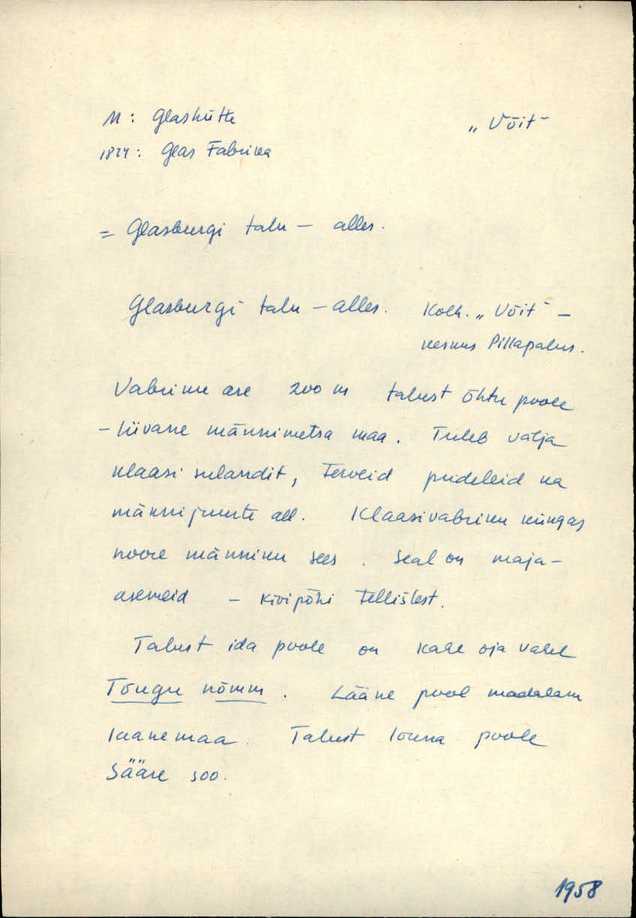 M: Glashütte
„Võit"
1824: Glas Fabrika
= Glasburgi talu – alles.
Glasburgi talu – alles. Kolh. „Võit" –
keskus Pillapalus.
Vabriku ase 200 m talust õhtu poole
– liivane männimetsa maa. Tuleb välja
klaasi sulandit, terveid pudeleid ka
männijuurte all. Klaasivabriku küngas
noore männiku sees. Seal on maja-
asemeid – kivipõhi tellistest.
Talust ida poole on kahe oja vahel
Tõugu nõmm. Lääne pool madalam
laanemaa. Talust lõuna poole
Sääre soo.
1958